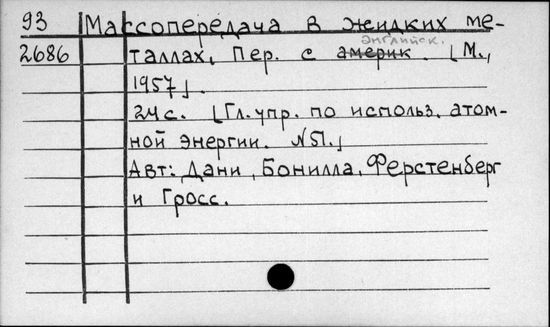 93 Массопередача в жидких ме-
английск.
2686 таллах. Пер. с америк. [М.,
1957].
24 с. [Гл. упр. по использ. атом-
ной энергии. N51.]
Авт: Дани, Бонилла, Ферстенберг
и Гросс.